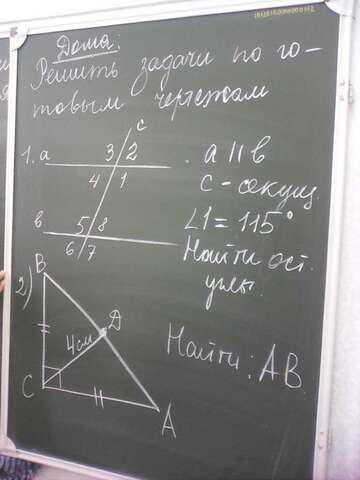 Дома:
Решить задачи по го-
товым чертежам
c
1. a 3 2
4 1
в 5 8
6 7
a || в
с - секущ.
∠1 = 115°
Найти ост.
углы.
2)
B
D
4 см
C
A
Найти: AB